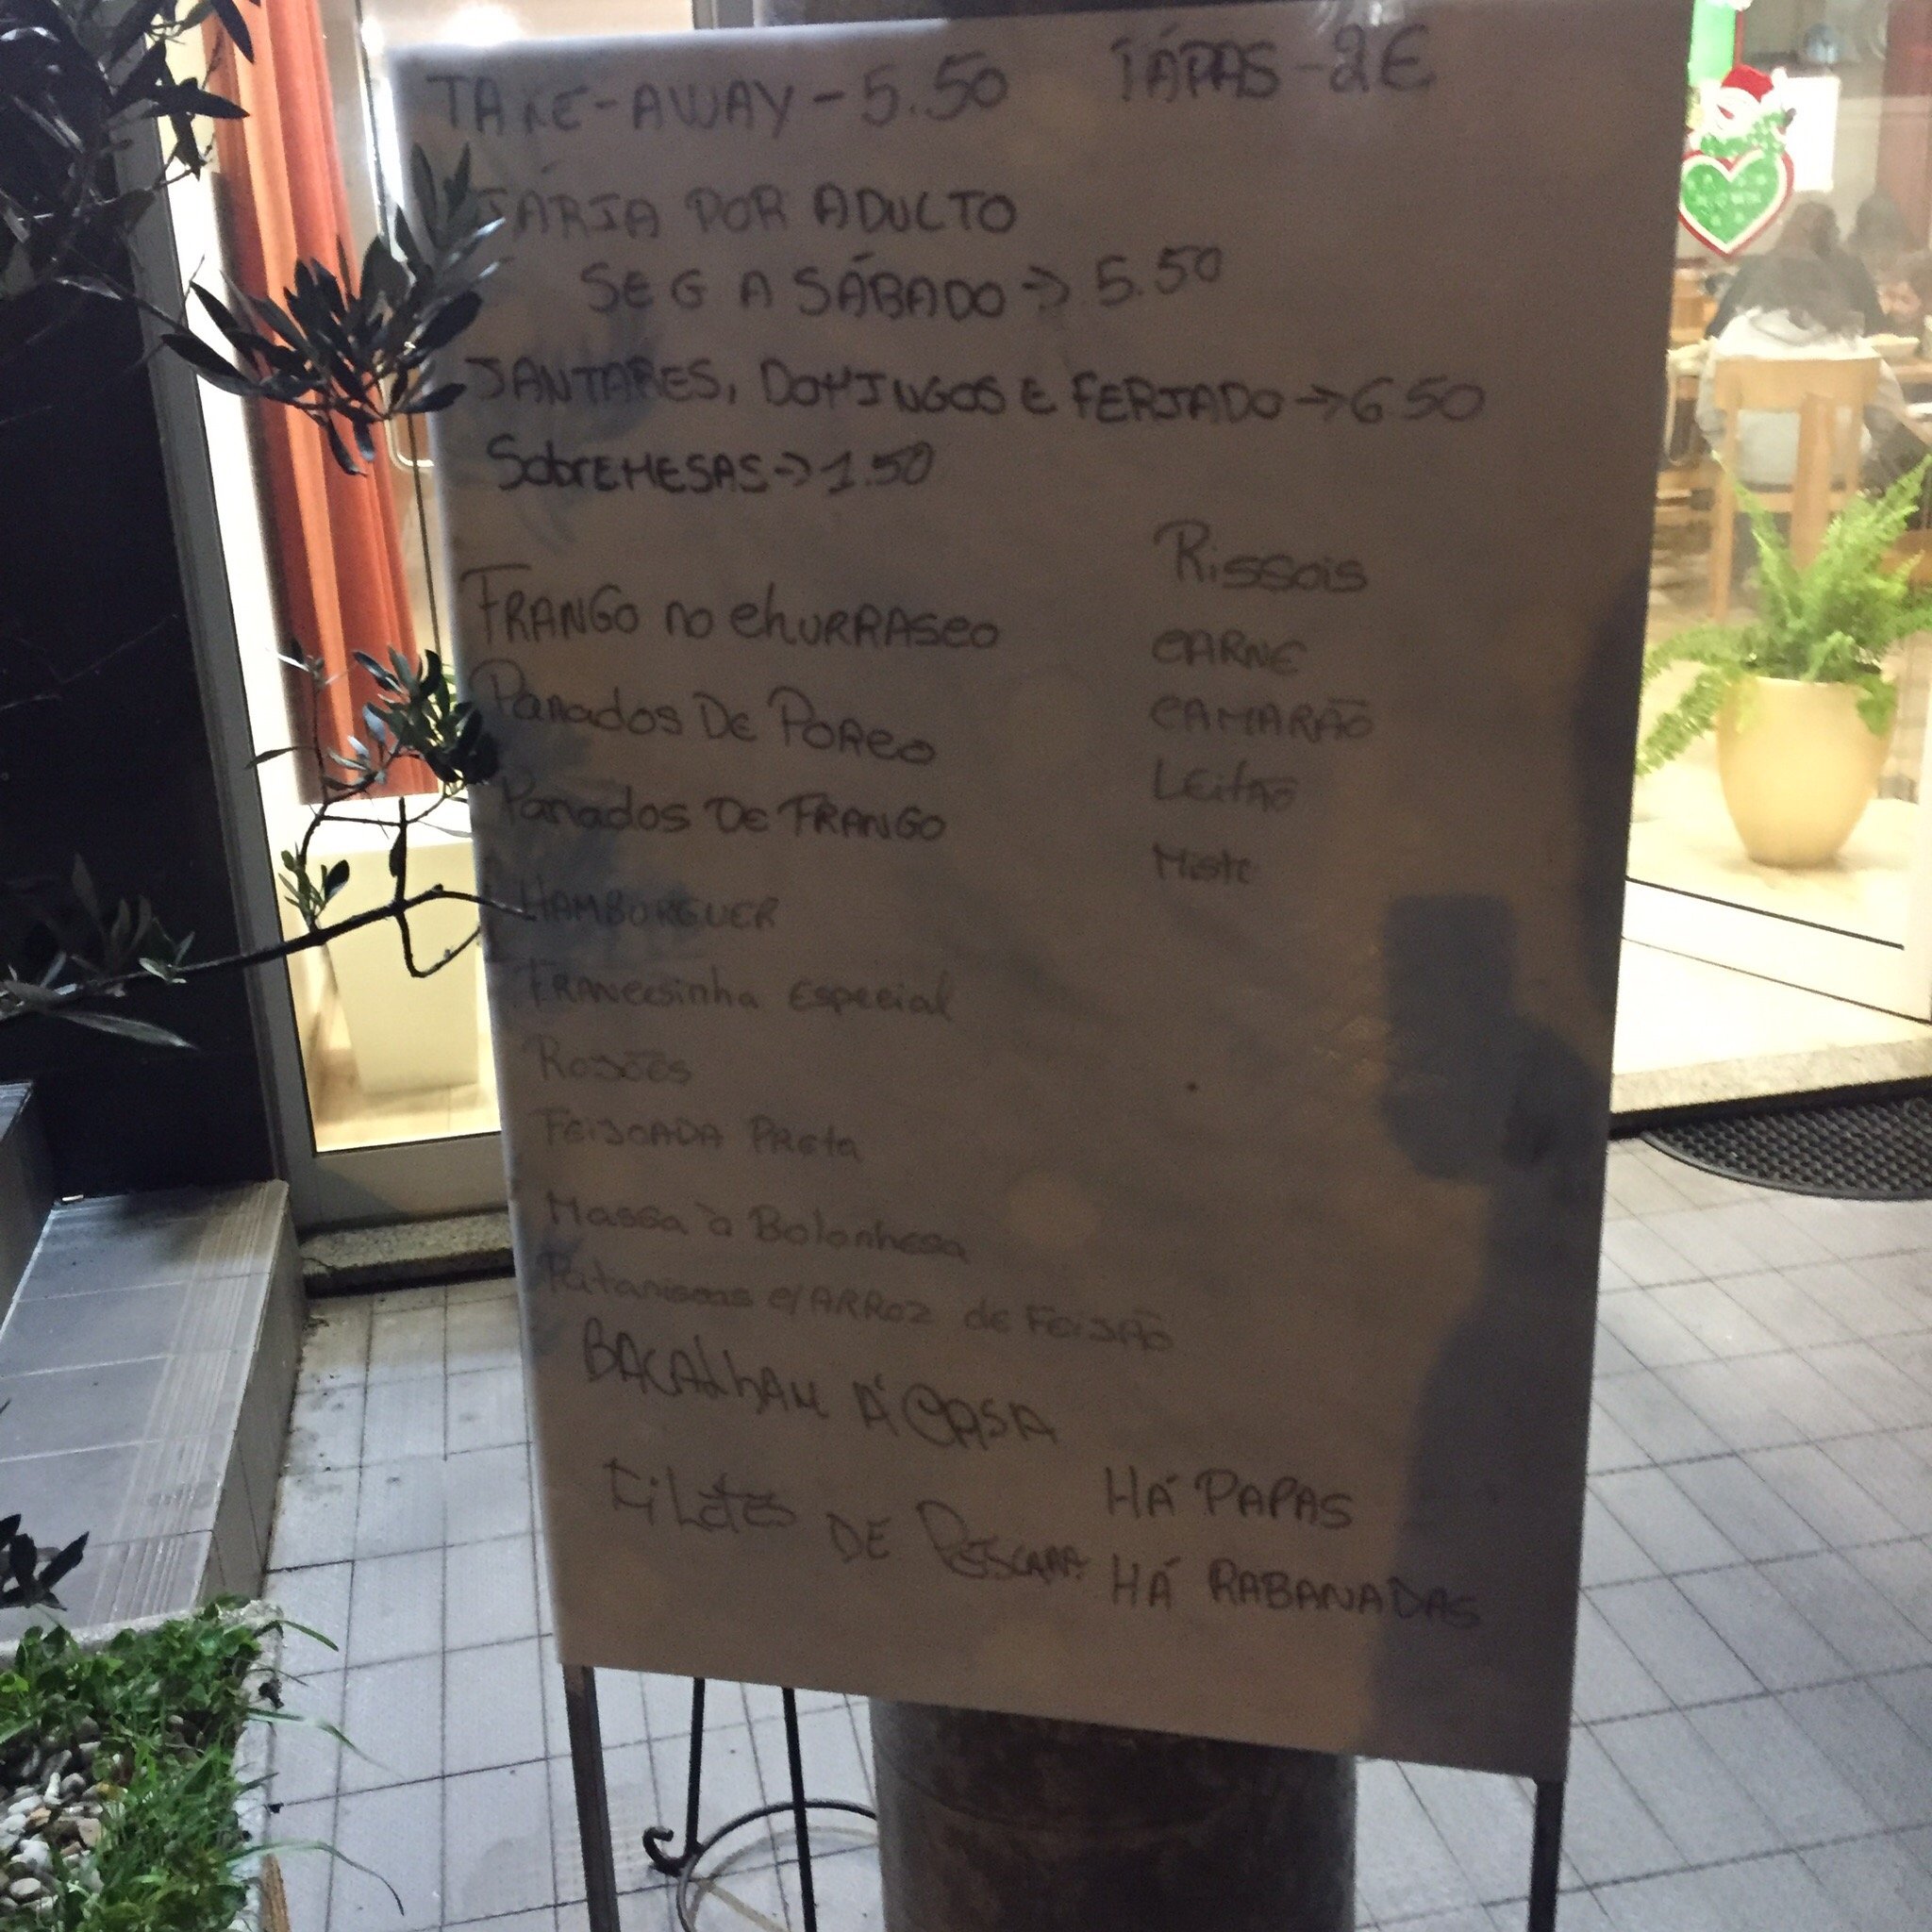 TAKE-AWAY - 5.50 TÁPAS - 2€
POR ADULTO
SEG A SÁBADO → 5.50
JANTARES, DOMINGOS E FERIADO → 6 50
SobrEMESAS → 1.50
FRANGO no chURRASCO
Panados DE PORCO
Panados DE FRANGO
HAMBURGUER
FRANcesinha Especial
ROJÕES
FEIJOADA PReta
Massa à Bolonhesa
Pataniscas c/ARROZ de FeijÃo
BACALhAU Á CASA
FiLetes DE PESCADA
Rissois
CARNE
CAMARÃO
LEitão
Misto
HÁ PAPAS
HÁ RABANADAS